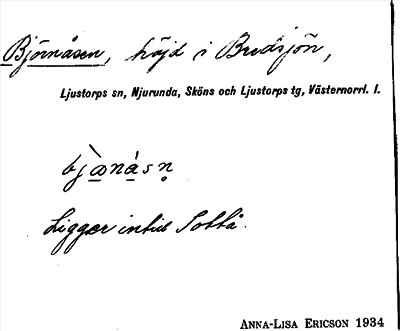 Björnåsen, höjd i Bredsjön,
Ljustorps sn, Njurunda, Sköns och Ljustorps tg, Västernorrl. l.
bjœ̀nåsn̥
Ligger intill
ANNA-LISA ERICSON 1934